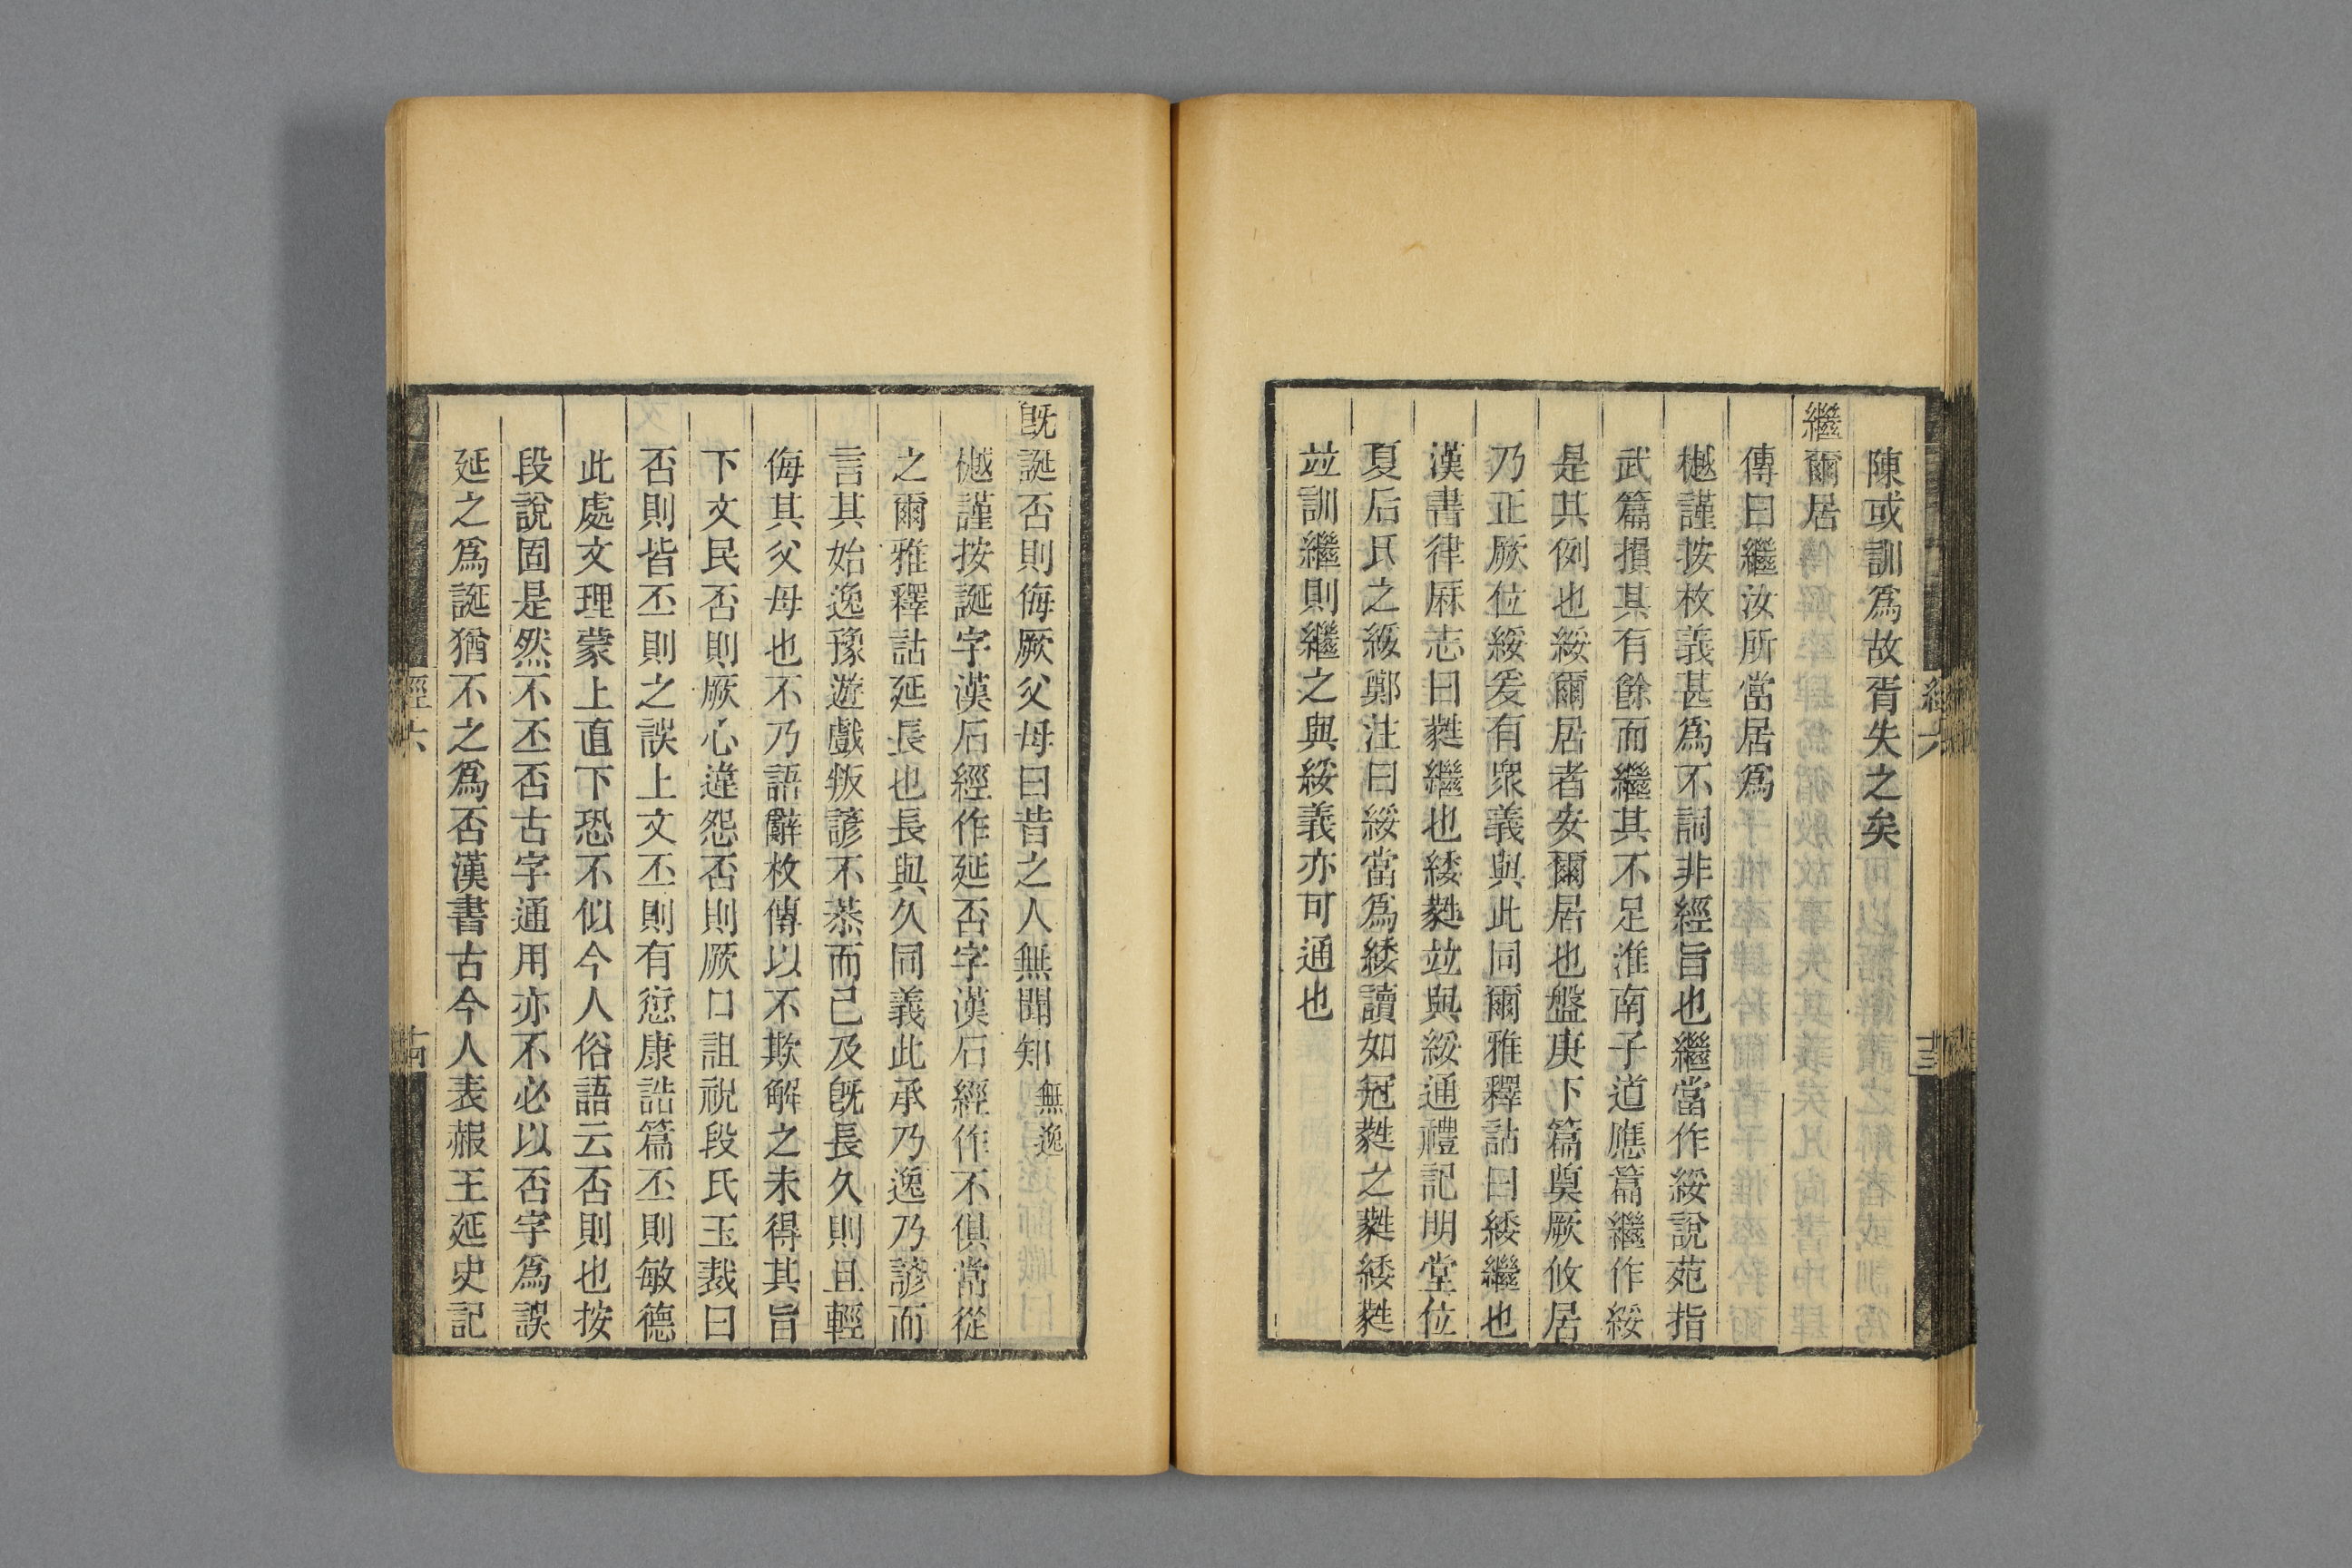 陳或訓爲故胥失之矣
繼爾居
傳曰繼汝所當居爲
樾謹按枚義甚爲不詞非經旨也繼當作綏說苑指
武篇損其有餘而繼其不足淮南子道應篇繼作綏
是其例也綏爾居者安爾居也盤庚下篇奠厥攸居
乃正厥位綏爰有眾義與此同爾雅釋詁曰緌繼也
漢書律厤志曰蕤繼也緌蕤竝與綏通禮記明堂位
夏后氏之綏鄭注曰綏當爲緌讀如冠蕤之蕤緌蕤
竝訓繼則繼之與綏義亦可通也
經六
十三
旣誕否則侮厥父母曰昔之人無聞知 無逸
樾謹按誕字漢石經作延否字漢石經作不俱當從
之爾雅釋詁延長也長與久同義此承乃逸乃諺而
言其始逸豫遊戲叛諺不恭而已及旣長久則且輕
侮其父母也不乃語辭枚傳以不欺解之未得其旨
下文民否則厥心違怨否則厥口詛祝段氏玉裁曰
否則皆丕則之誤上文丕則有愆康誥篇丕則敏德
此處文理蒙上直下恐不似今人俗語云否則也按
段說固是然不丕否古字通用亦不必以否字爲誤
延之爲誕猶不之爲否漢書古今人表赧王延史記
經六
十四